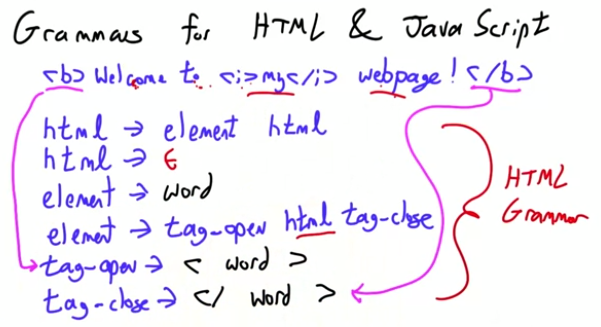 Grammars for HTML & JavaScript
<b> Welcome to <i>my</i> webpage! </b>
html → element html
html → ε
element → word
element → tag-open html tag-close
tag-open → < word >
tag-close → </ word >
HTML
Grammar